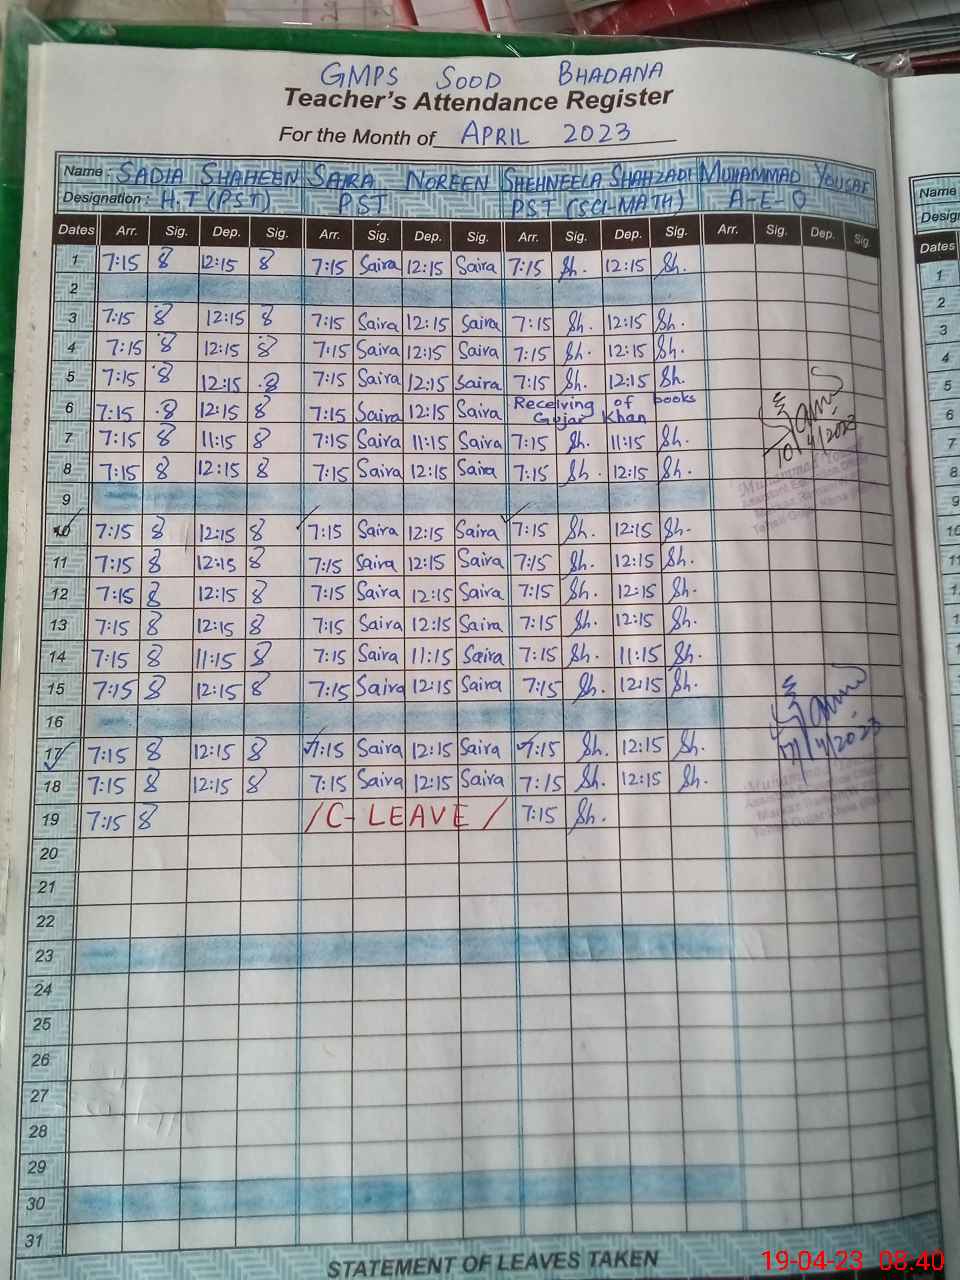 GMPS SOOD BHADANA
Teacher's Attendance Register
For the Month of APRIL 2023
Name : SADIA SHAHEEN SAIRA NOREEN SHEHNEELA SHAHZADI MUHAMMAD YOUSAF
Designation : H.T (PST) PST PST (SCI-MATH) A-E-O
Dates Arr. Sig. Dep. Sig. Arr. Sig. Dep. Sig. Arr. Sig. Dep. Sig. Arr. Sig. Dep. Sig.
1 7:15 8 12:15 8 7:15 Saira 12:15 Saira 7:15 Sh. 12:15 Sh.
2
3 7:15 8 12:15 8 7:15 Saira 12:15 Saira 7:15 Sh. 12:15 Sh.
4 7:15 8 12:15 8 7:15 Saira 12:15 Saira 7:15 Sh. 12:15 Sh.
5 7:15 8 12:15 8 7:15 Saira 12:15 Saira 7:15 Sh. 12:15 Sh.
6 7:15 8 12:15 8 7:15 Saira 12:15 Saira Receiving of books
Gujar Khan
7 7:15 8 11:15 8 7:15 Saira 11:15 Saira 7:15 Sh. 11:15 Sh.
10/4/2023
8 7:15 8 12:15 8 7:15 Saira 12:15 Saira 7:15 Sh. 12:15 Sh.
9
10 7:15 8 12:15 8 7:15 Saira 12:15 Saira 7:15 Sh. 12:15 Sh.
11 7:15 8 12:15 8 7:15 Saira 12:15 Saira 7:15 Sh. 12:15 Sh.
12 7:15 8 12:15 8 7:15 Saira 12:15 Saira 7:15 Sh. 12:15 Sh.
13 7:15 8 12:15 8 7:15 Saira 12:15 Saira 7:15 Sh. 12:15 Sh.
14 7:15 8 11:15 8 7:15 Saira 11:15 Saira 7:15 Sh. 11:15 Sh.
15 7:15 8 12:15 8 7:15 Saira 12:15 Saira 7:15 Sh. 12:15 Sh.
16
17 7:15 8 12:15 8 7:15 Saira 12:15 Saira 7:15 Sh. 12:15 Sh.
17/4/2023
18 7:15 8 12:15 8 7:15 Saira 12:15 Saira 7:15 Sh. 12:15 Sh.
19 7:15 8 /C-LEAVE/ 7:15 Sh.
20
21
22
23
24
25
26
27
28
29
30
31
STATEMENT OF LEAVES TAKEN
Name
Dates
1
2
3
4
5
6
7
8
9
10
11
19-04-23 08:40